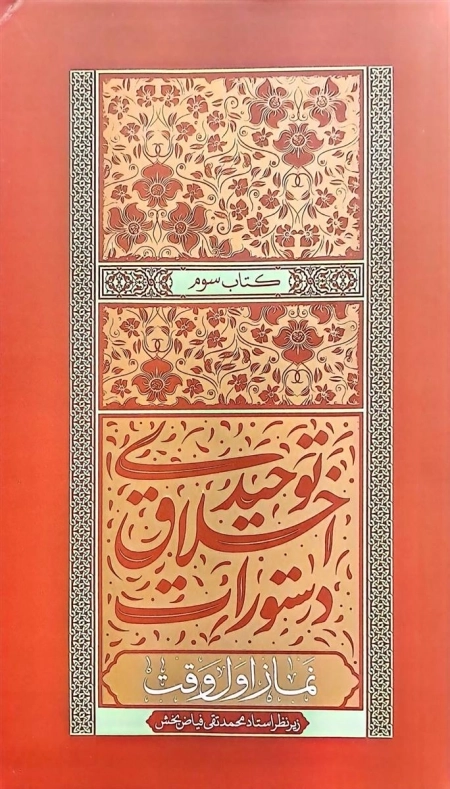 کتاب سوم
دستورات
اخلاق
توحیدی
نماز اول وقت
زیر نظر استاد محمد تقی فیاض بخش